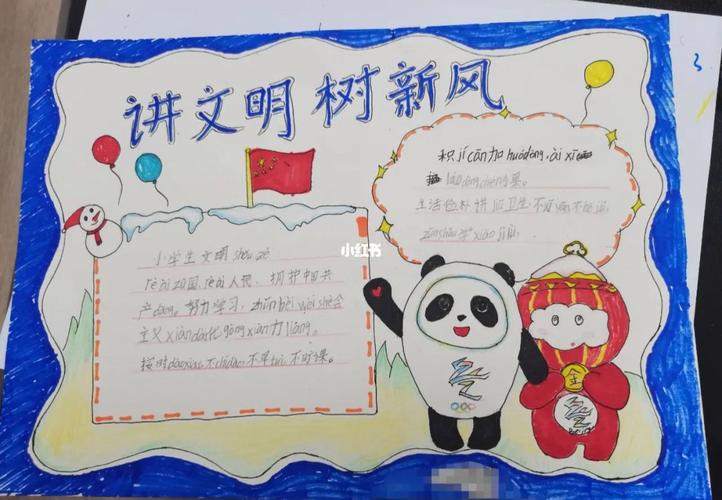 讲文明 树新风
3
积jí cān加 huódòng,ài xī
láo dòng chéng果。
生活 讲 卫生 不
zūnshǒu 学xiào
小红书
小学生文明 shǒu zé
rè ài祖国,rè ài人民、拥护中国共
产dǎng。努力学习,zhǔn bèi wèi shè会
主义xiàn dài化gòng xiàn力liàng。
按时dào xiào,不chídào,不早tuì,不旷课。
金